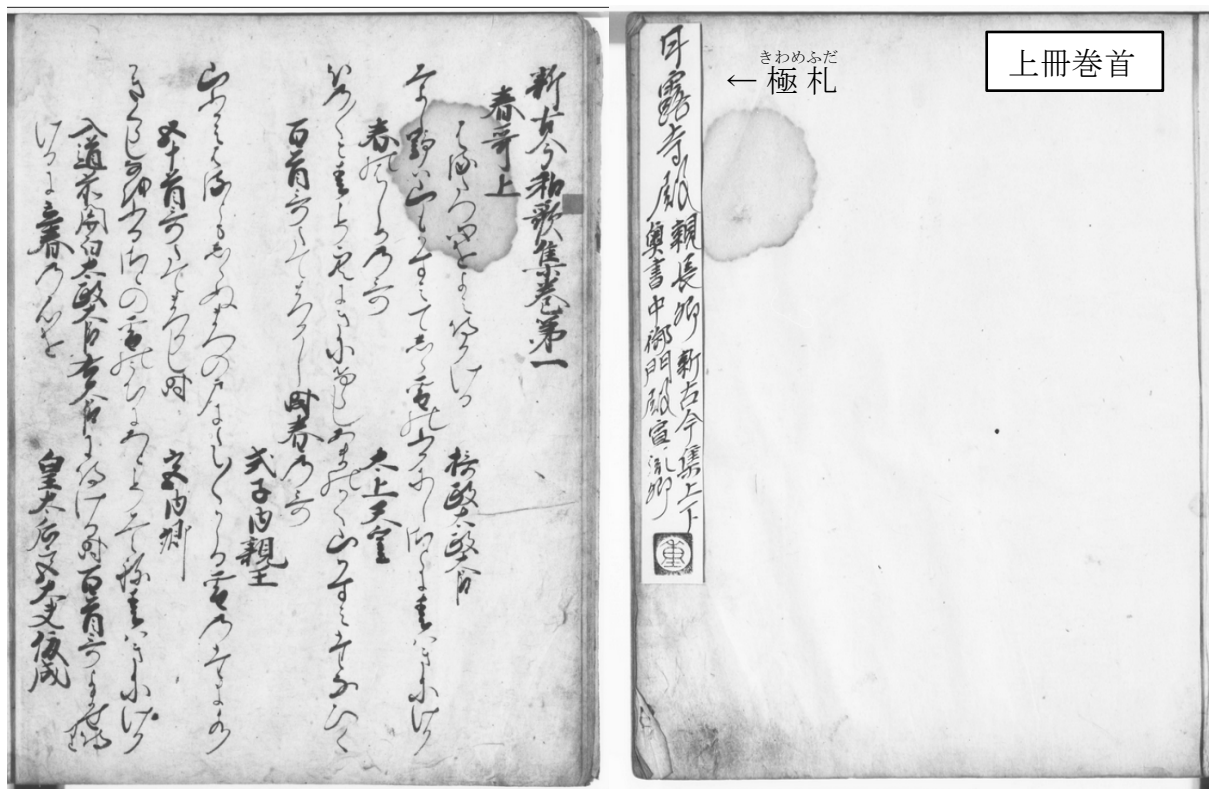 上冊巻首
きわめふだ
← 極札
甘露寺殿 親長卿 新古今集上下
奥書中御門殿宣胤卿
新古今和歌集巻第一
春哥上
はるたつ心をよみ侍ける
摂政太政大臣
みよし野ハ山もかすミてしら雪のふりにし里に春ハきにけり
春のはしめの哥
太上天皇
ほの〱と春こそ空にきにけらしあまのかく山かすミたなひく
百首哥たてまつりし時春の哥
式子内親王
山ふかミ春ともしらぬまつの戸にたえ〱かゝる雪の玉水
五十首哥たてまつりし時
宮内卿
かきくらし猶ふるさとの雪のうちにあとこそ見えね春ハきにけり
入道前関白太政大臣右大臣に侍ける時百首哥よませ侍
けるに立春の心を
皇太后宮大夫俊成